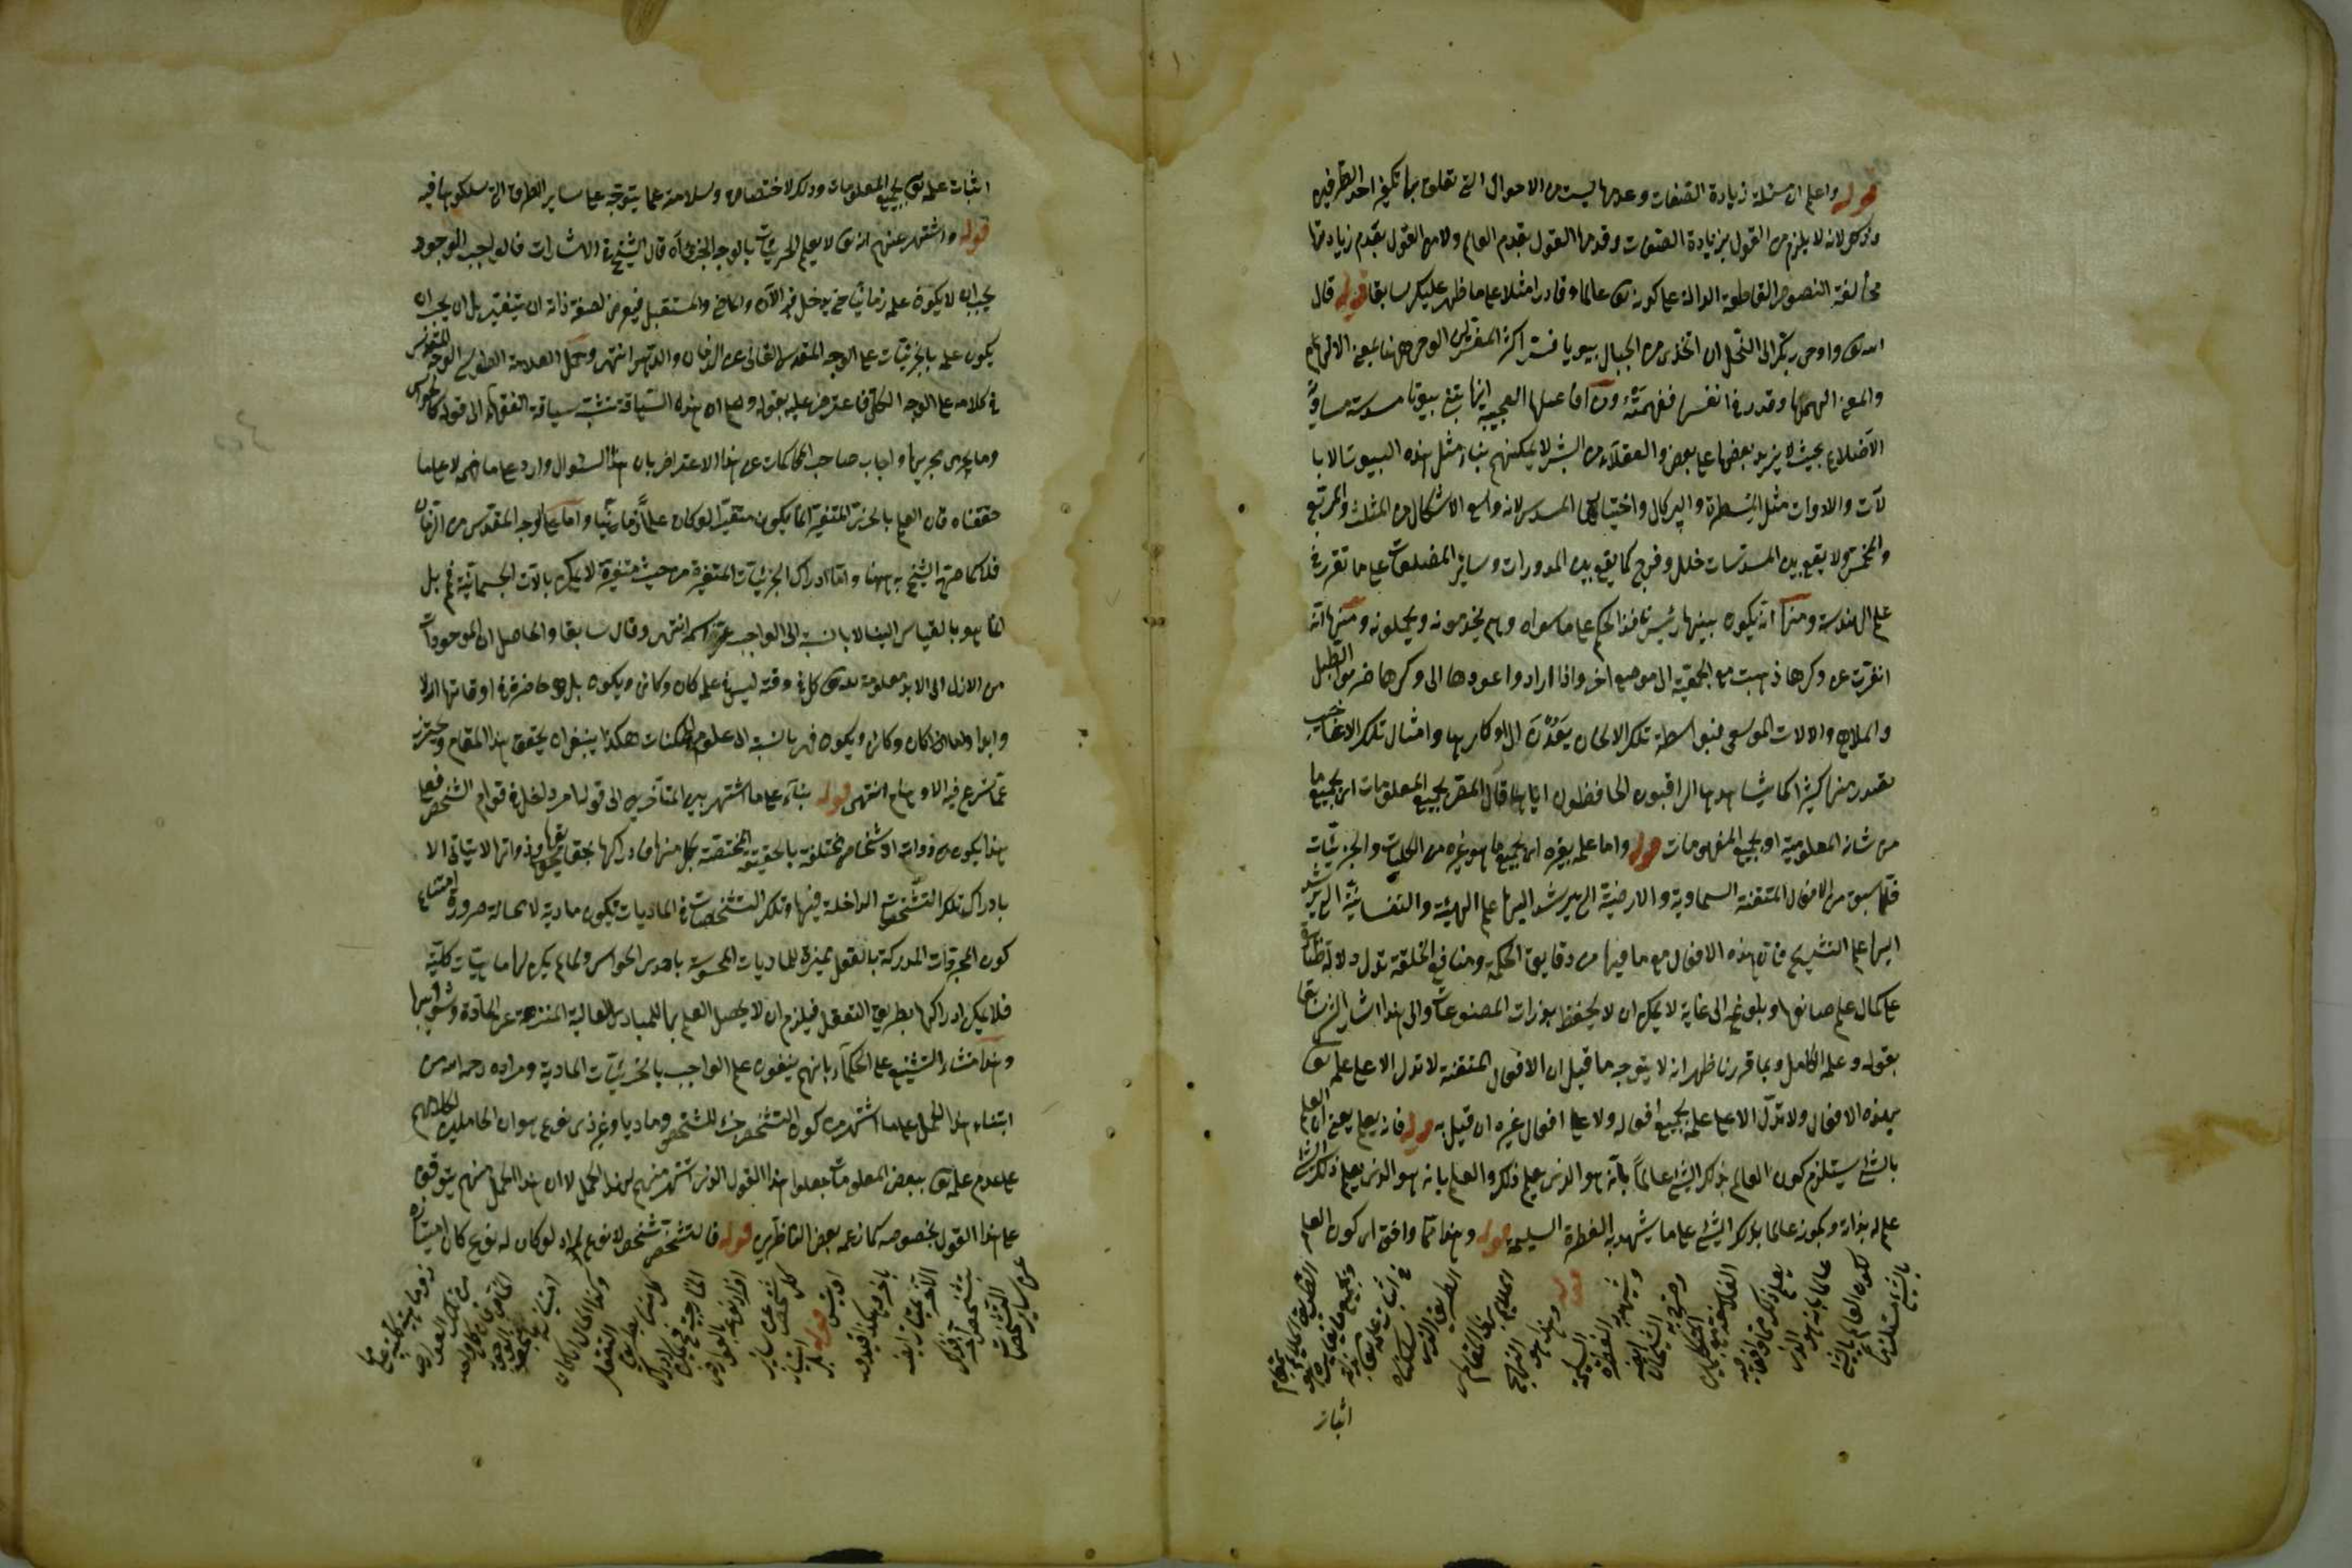 قوله واعلم ان مسئلة زيادة الصفات وعدمها ليست من الاحوال التي تعلق بها تكفير احد الطرفين
وذلك لانه لا يلزم من القول بزيادة الصفات وقدمها القول بقدم العالم ولا من القول بعدم زيادتها
مخالفة النصوص القاطعة الدالة على كونه تعالى عالما وقادرا مثلا على ما ظهر عليك سابقا قوله قال
الله تعالى واوحى ربك الى النحل ان اتخذي من الجبال بيوتا فسر اكثر المفسرين الوحي ههنا بمعنى الالهام
والمعنى الهمها وقدر في انفسها ففهمته ومن افاعيلها العجيبة انها تبني بيوتا مسدسة متساوية
الاضلاع بحيث لا يزيد بعضها على بعض والعقلاء من البشر لا يمكنهم بناء مثل هذه البيوت الا با
لآت والادوات مثل المسطرة والپركال واختيارها المسدس لانه واسع الاشكال من المثلث والمربع
والمخمس ولا يقع بين المسدسات خلل وفرج كما يقع بين المدورات وسائر المضلعات على ما تقرر في
علم الهندسة ومنها انه يكون بينها رئيس نافذ الحكم على ما سواه وهم يخدمونه ويحملونه ومنها انه
انفرت عن وكرها ذهبت مع الجمعية الى موضع اخر واذا ارادوا عودها الى وكرها ضربوا الطبل
والملاهي والالات الموسيقى فبواسطة تلك الالحان يعدن الى اوكارها وامثال تلك الاعاجيب
تصدر منها كثيرا كما يشاهدها الراقبون الحافظون اياها قال المص بجميع المعلومات اي بجميع ما
من شانه المعلومية او بجميع المفهومات قوله واما علمه بغيره اي بجميع ما هو غيره من الكليات والجزئيات
فلما سبق من الافعال المتقنة السماوية والارضية التي يرشد اليها علم الهيئة والنفسانية التي يرشد
اليها علم التشريح فان هذه الافعال مع ما فيها من دقايق الحكمة ومنافع الخلقة تدل دلالة ظاهرة
على كمال علم صانعها وبلوغه الى غاية لا يمكن ان لا يحفظ بذرات المصنوعات والى هذا اشار الش سابقا
بقوله وعلمه الكامل وبما قررنا ظهر انه لا يتوجه ما قيل ان الافعال المتقنة لا تدل الا على علمه تعالى
بهذه الافعال ولا تدل الا على علمه بجميع افعاله ولا على افعال غيره ان قيل به قوله فانه يعلم يعني ان العلم
بالشئ يستلزم كون العالم بذلك الشئ عالما بانه هو الذي يعلم ذلك والعلم بانه هو الذي يعلم ذلك الشئ
علم له بذاته وبكونه عالما بذلك الشئ على ما يشهد به الفطرة السليمة قوله وهذا مما وافق اي كون العلم
بالشئ مستلزما
لكون العالم بالشئ
عالما بانه هو الذي
يعلم ذلك مما وافق فيه
الفلاسفة مع المتكلمين
وصرح به الشيخان ايضا
ويشهد به الفطرة السليمة
قوله وهذا هو المنهج
الملايم بهذا المقام
الطريق الذي سلكناه
في اثبات علمه تعالى بذاته
وبجميع ما يغايره هو
الطريقة الملايمة بمقام
اثبات
اثبات علمه تعالى بجميع المعلومات وذلك لاختصاصه وسلامته عما يتوجه على ساير الطرق التي سلكوها فيه
قوله واشتهر عنهم انه تعالى لا يعلم الجزئيات بالوجه الجزئي آه قال الشيخ في الاشارات فالواجب الوجود
يجب ان لا يكون علمه زمانيا حتى يدخل فيه الآن والماضي والمستقبل فيعرض لصفة ذاته ان يتغير بل ان يجب ان
يكون علمه بالجزئيات على الوجه المقدس العالي عن الزمان والدهر انتهى وحمل العلامة الطوسي الوجه المقدس
في كلامه على الوجه الكلي فاعترض عليه بقوله واعلم ان هذه السياقة تشبه سياقة الفقهاء الى قوله كالحواس
وما يجري مجريها واجاب صاحب المحاكمات عن هذا الاعتراض بان هذا السؤال وارد على ما فهمه لا على ما
حققناه فان العلم بالجزئيات المتغيرة انما يكون متغيرا لو كان علما زمانيا واما على الوجه المقدس من الزمان
فلا كما صرح الشيخ به ههنا واما ادراك الجزئيات المتغيرة من حيث متغيرة لا يمكن بالآت الجسمانية فمم بل
انما هو بالقياس الينا لا بالنسبة الى الواجب عز اسمه انتهى وقال سابقا والحاصل ان الموجودات
من الازل الى الابد معلومة لله تعالى كل في وقته ليس في علمه كان وكائن ويكون بل هي حاضرة في اوقاتها ازلا
وابدا وانما كان وكائن ويكون فهي بالنسبة الى علوم الممكنات هكذا ينبغي ان يحقق هذا المقام ويحترز
عما تسرع فيه الاوهام انتهى قوله بناء على ما اشتهر بين المتأخرين الى قوله امر داخل في قوام الشخص فعلى
هذا يكون ذوات الاشخاص مختلفة بالحقيقة المختصة بكل منها فادراكها بحقايقها وذواتها لا يتأتى الا
بادراك تلك التشخصات الداخلة فيها وتلك التشخصات في الماديات يكون مادية لا محالة ضرورة امتناع
كون المجردات المدركة بالعقل مميزة للماديات المحسوسة باحدى الحواس ولما لم يكن لها ماهيات كلية
فلا يمكن ادراكها بطريق التعقل فيلزم ان لا يحصل العلم بها للمبادي العالية المنزهة عن المادة وشوائبها
وهذا منشاء التشنيع على الحكماء بانهم ينفون علم الواجب بالجزئيات المادية ومراده رحمه الله من
ابتناء هذا الحمل على ما اشتهر من كون التشخص جزء للشخص وماديا وغير ذي نوع هو ان الحاملين لكلامهم
على عدم علمه تعالى ببعض المعلومات جعلوا هذا القول الذي اشتهر منهم لهذا الحمل لا ان هذا الحمل منهم يتوقف
على هذا القول بخصوصه كما زعمه بعض الناظرين قوله فالتشخص شخص لا نوع له اذ لو كان له نوع كان امتيازه
عن ساير التشخصات
بتشخص آخر
باخر وهكذا
قوله